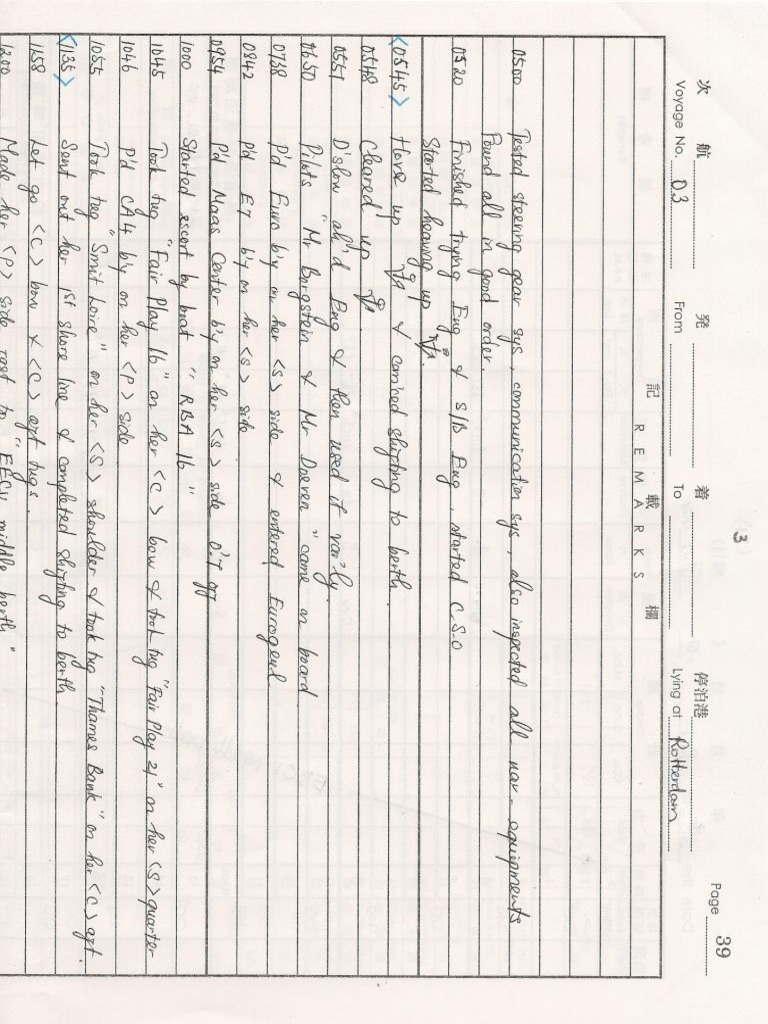 3
次 航 発 着 停泊港
Voyage No. 03 From To Lying at Rotterdam Page 39
記 載 欄
REMARKS
0500 Tested steering gear sys, communication sys, also inspected all nav-equipments
Found all in good order.
0520 Finished trying Eng & S/B Eng, started C.S.O
Started heaving up
<0545> Hove up & com'ced shifting to berth.
0548 Cleared up
0551 D'slow ah'd Eng & then used it var'ly.
0650 Pilots "Mr Borgstein & Mr Doeven" come on board
0738 P'd Euro b'y on her <S> side & entered Eurogeul
0842 P'd E7 b'y on her <S> side
0954 P'd Maas Center b'y on her <S> side 0.7 off
1000 Started escort by boat "RBA 16"
1045 Took tug "Fair Play 16" on her <C> bow & took tug "Fair Play 21" on her <S> quarter
1046 P'd CA4 b'y on her <P> side
1055 Took tug "Smit Loire" on her <S> shoulder & took tug "Thames Bank" on her <C> aft.
<1135> Sent out her 1st shore line & completed shifting to berth.
1158 Let go <C> bow & <C> aft tugs.
1200 Made her <P> side fast to "EECV middle berth"